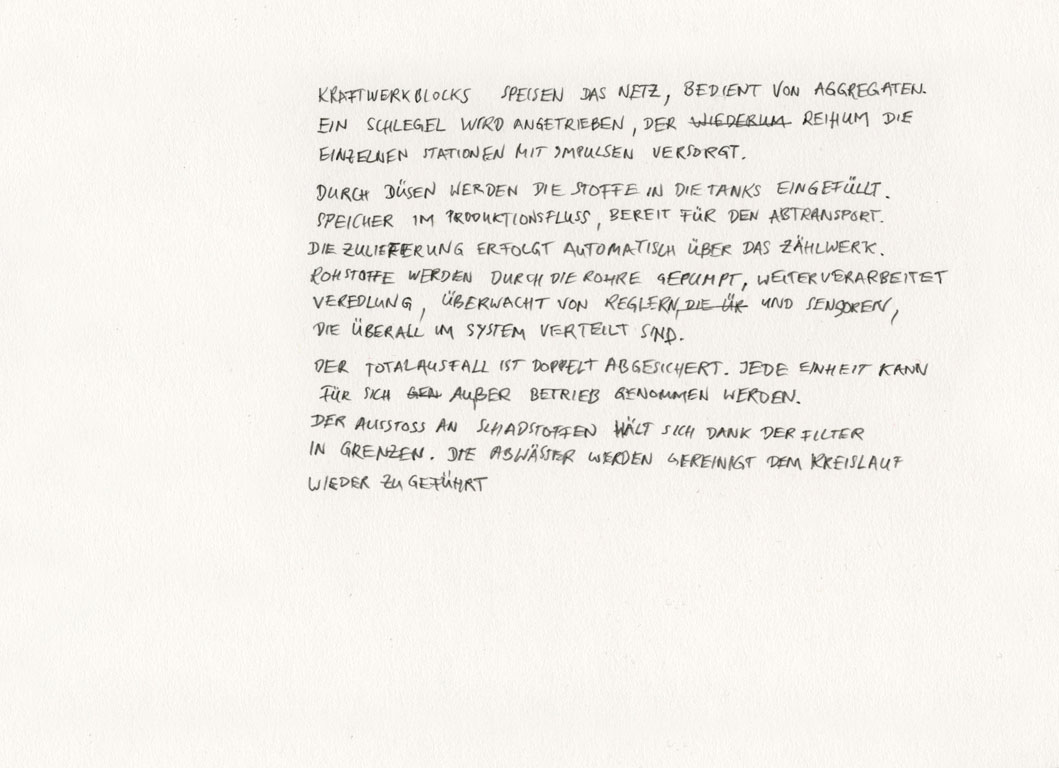 KRAFTWERKBLOCKS SPEISEN DAS NETZ, BEDIENT VON AGGREGATEN.
EIN SCHLEGEL WIRD ANGETRIEBEN, DER WIEDERUM REIHUM DIE
EINZELNEN STATIONEN MIT IMPULSEN VERSORGT.
DURCH DÜSEN WERDEN DIE STOFFE IN DIE TANKS EINGEFÜLLT.
SPEICHER IM PRODUKTIONSFLUSS, BEREIT FÜR DEN ABTRANSPORT.
DIE ZULIEFERUNG ERFOLGT AUTOMATISCH ÜBER DAS ZÄHLWERK.
ROHSTOFFE WERDEN DURCH DIE ROHRE GEPUMPT, WEITERVERARBEITET
VEREDLUNG, ÜBERWACHT VON REGLERN, DIE ÜR UND SENSOREN,
DIE ÜBERALL IM SYSTEM VERTEILT SIND.
DER TOTALAUSFALL IST DOPPELT ABGESICHERT. JEDE EINHEIT KANN
FÜR SICH GEN AUßER BETRIEB GENOMMEN WERDEN.
DER AUSSTOSS AN SCHADSTOFFEN HÄLT SICH DANK DER FILTER
IN GRENZEN. DIE ABWÄSSER WERDEN GEREINIGT DEM KREISLAUF
WIEDER ZUGEFÜHRT